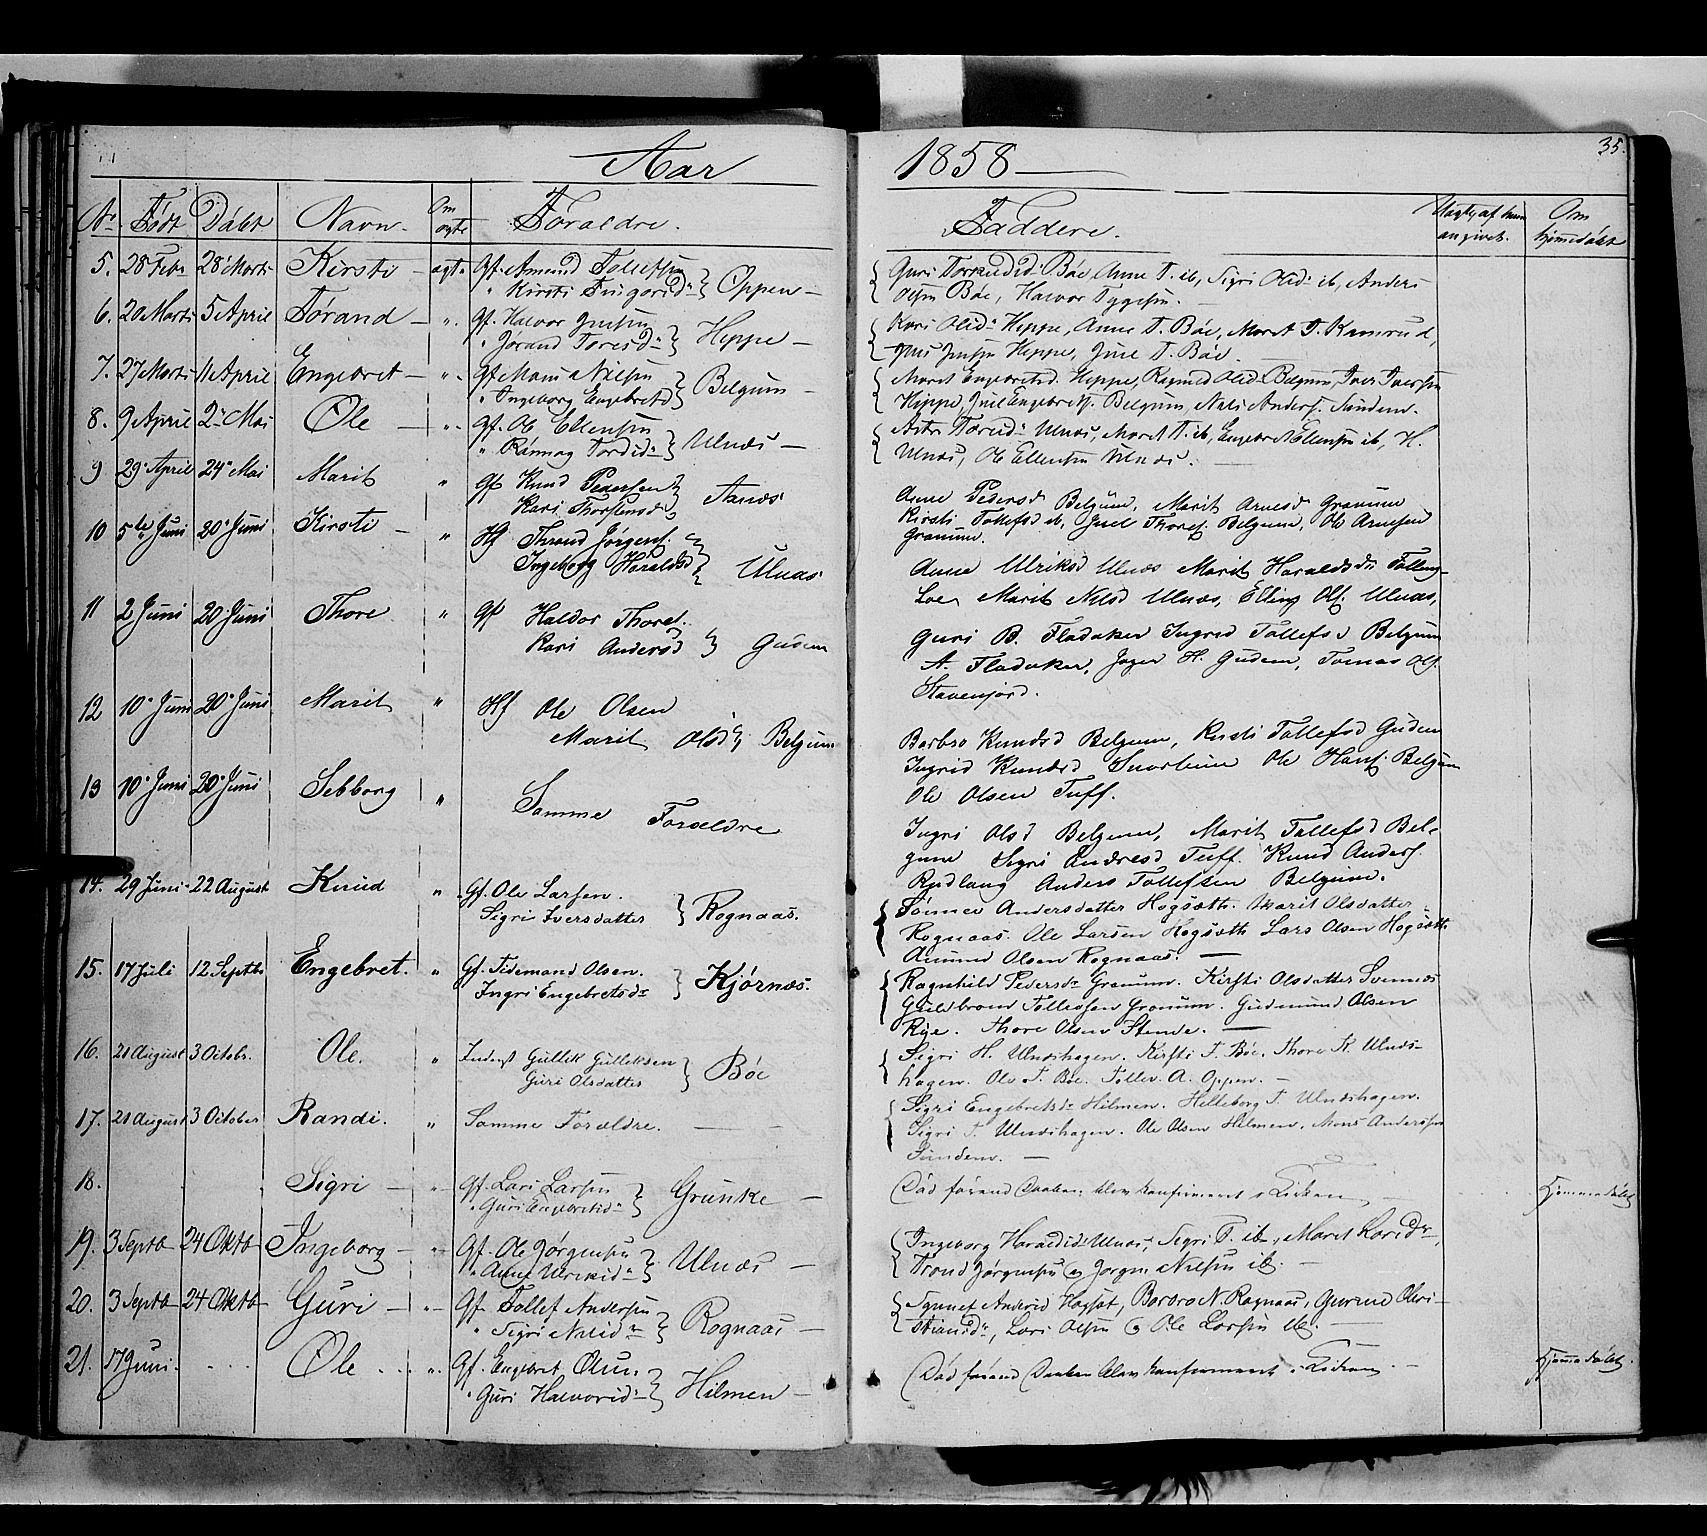 Aar 1858
35.
No Födt Döbt Navn Om ægte Foraldre. Faddere. Om hjemedöbt
5. 28 Febr 28 Marts Kirsti ægte Gf. Amund Tollefsen
Kirsti Oppen
Guri Böe Anne T. ib, Sigri Olsd ib, Anders
Olsen Böe, Halvor
6. 20 Marts 5 April Jörand Gf. Halvor
Jörand Toresdr Heppe
Kari Olsdr Heppe, Anne T. Böe, Marit T.
Heppe, Juel T. Böe.
7. 27 Marts 11 April Engebret Gf. Mons Nilsen
Ingeborg Engebretsd Belgum
Marit Engebretsd. Heppe, Ragnild Olsd Belgum, Iver Iversen
Heppe, Juel Engebrets. Belgum, Nils Anders. Sundem.
8. 9 April 2 Mai Ole Gf. Ole Ellensen
Rönnog Tordsdr Ulnæs
Ulnæs, Marit T. ib, Engebret Ellensen ib, H.
Ulnæs, Ole Ellensen Ulnæs.
9 29 April 24 Mai Marit " Gf Knud Pedersen
Kari Thorstensd Aanæs
Anne Pedersd Belgum, Marit Arnesd Granum
Kirsti Tollefsd ib, Juel Thores. Belgum, Ole Arnesen
Granum.
10 5te Juni 20 Juni Kirsti " Hf Thrond Jörgens.
Ingeborg Haraldsd Ulnæs
Anne Ulriksd Ulnæs Marit Haraldsdr
Loe, Marit Nilsd Ulnæs, Elling Ols. Ulnæs,
11 2 Juni 20 Juni Thore " Gf Haldor Thores.
Kari Andersd Gudem
Guri B. Fladaker Ingrid Tollefsd Belgum
A. Fladaker, H. Gudem, Tomas Ols.
Stavenjord.
12 10 Juni 20 Juni Marit " Hf Ole Olsen
Marit Olsd Belgum
Barbro Knudsd Belgum, Kirsti Tollefsd Gudem
Ingrid Knudsd Ole Hans. Belgum
Ole Olsen Tuff.
13 10 Juni 20 Juni Sebborg " Samme Foræeldre
Ingri Olsd Belgum, Marit Tollefsd Bel-
gum Sigri Andresd Tuff. Knud Anders.
Rudlang Anders Tollefsen Belgum.
14. 29 Juni 22 August Knud " Gf. Ole Larsen.
Sigri Iversdatter Rognaas.
Andersdatter Hogsæth. Marit Olsdatter
Rognaas. Ole Larsen Högsæth Lars Olsen Högsæth
Amund Olsen Rognaas.
15. 17 Juli 12 Septbr Engebret. " Gf. Tidemand Olsen.
Ingri Engebretsdr Kjörnæs.
Ragnhild Pedersdr Granum. Kirsti Olsdatter Svennæs
Guldbrand Tollefsen Granum. Gudmund Olsen
Rye. Thore Olsen Stende.
16. 21 August 3 Octobr. Ole. " Inderst Gullik Gulleksen
Guri Olsdatter Böe
Sigri H. Ulnæshagen. Kirsti T. Böe. Thore K. Ulnæs-
hagen. Ole T. Böe. Tollev A. Oppen.
17. 21 August 3 October Randi. " Samme Foræeldre.
Sigri Engebretsdr Hilmen. Helleborg T. Ulnæshagen.
Sigri T. Ulnæshagen. Ole Olsen Hilmen. Mons Andersen
Sundem.
18. Sigri Gf. Lars Larsen
Guri Engebretsdr Grunke
Död förend Daaben blev konfirmeret i Kirken Hjemmedöbt
19. 3 Septb 24 Oktb Ingeborg Gf. Ole Jörgensen
Anne Ulriksdr Ulnæs
Ingeborg Haraldsd Ulnæs, Sigri T. ib, Marit
Trond Jörgensen og Jörgen Nilsen ib.
20. 3 Septb 24 Oktb Guri Gf. Tollef Andersen
Sigri Nilsdr Rognaas
Andersd Hogsæt, Barbro N. Rognaas,
Lars Olsen og Ole Larsen ib.
21. 17 Juni. Ole Gf. Engebret Olsen.
Guri Halvorsdr Hilmen
Död förend Daaben blev konfirmeret i Kirken Hjemmedöbt.